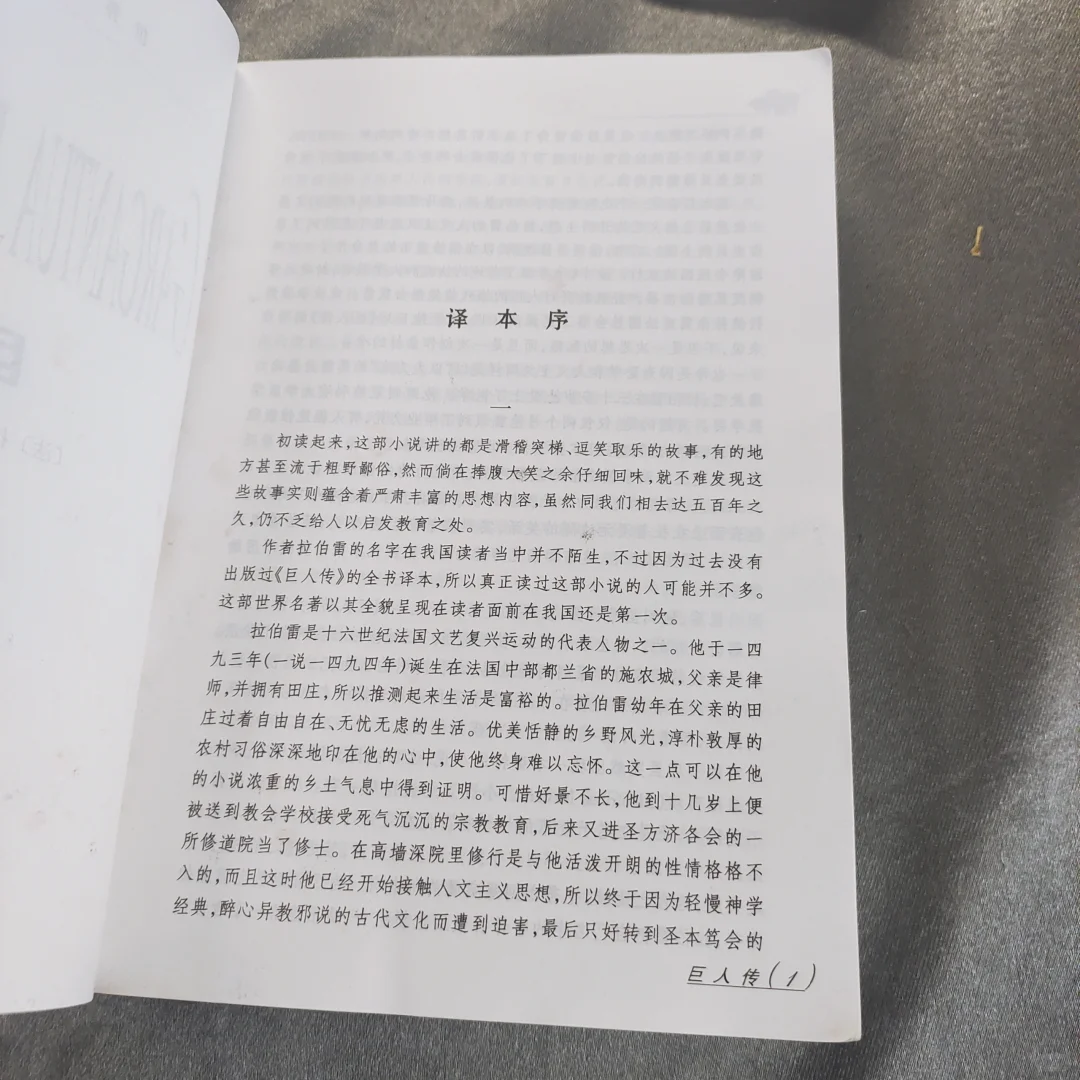 GARGANTUA
译本序
一
初读起来,这部小说讲的都是滑稽突梯、逗笑取乐的故事,有的地
方甚至流于粗野鄙俗,然而倘在捧腹大笑之余仔细回味,就不难发现这
些故事实则蕴含着严肃丰富的思想内容,虽然同我们相去达五百年之
久,仍不乏给人以启发教育之处。
作者拉伯雷的名字在我国读者当中并不陌生,不过因为过去没有
出版过《巨人传》的全书译本,所以真正读过这部小说的人可能并不多。
这部世界名著以其全貌呈现在读者面前在我国还是第一次。
拉伯雷是十六世纪法国文艺复兴运动的代表人物之一。他于一四
九三年(一说一四九四年)诞生在法国中部都兰省的施农城,父亲是律
师,并拥有田庄,所以推测起来生活是富裕的。拉伯雷幼年在父亲的田
庄过着自由自在、无忧无虑的生活。优美恬静的乡野风光,淳朴敦厚的
农村习俗深深地印在他的心中,使他终身难以忘怀。这一点可以在他
的小说浓重的乡土气息中得到证明。可惜好景不长,他到十几岁上便
被送到教会学校接受死气沉沉的宗教教育,后来又进圣方济各会的一
所修道院当了修士。在高墙深院里修行是与他活泼开朗的性情格格不
入的,而且这时他已经开始接触人文主义思想,所以终于因为轻慢神学
经典,醉心异教邪说的古代文化而遭到迫害,最后只好转到圣本笃会的
巨人传(1)